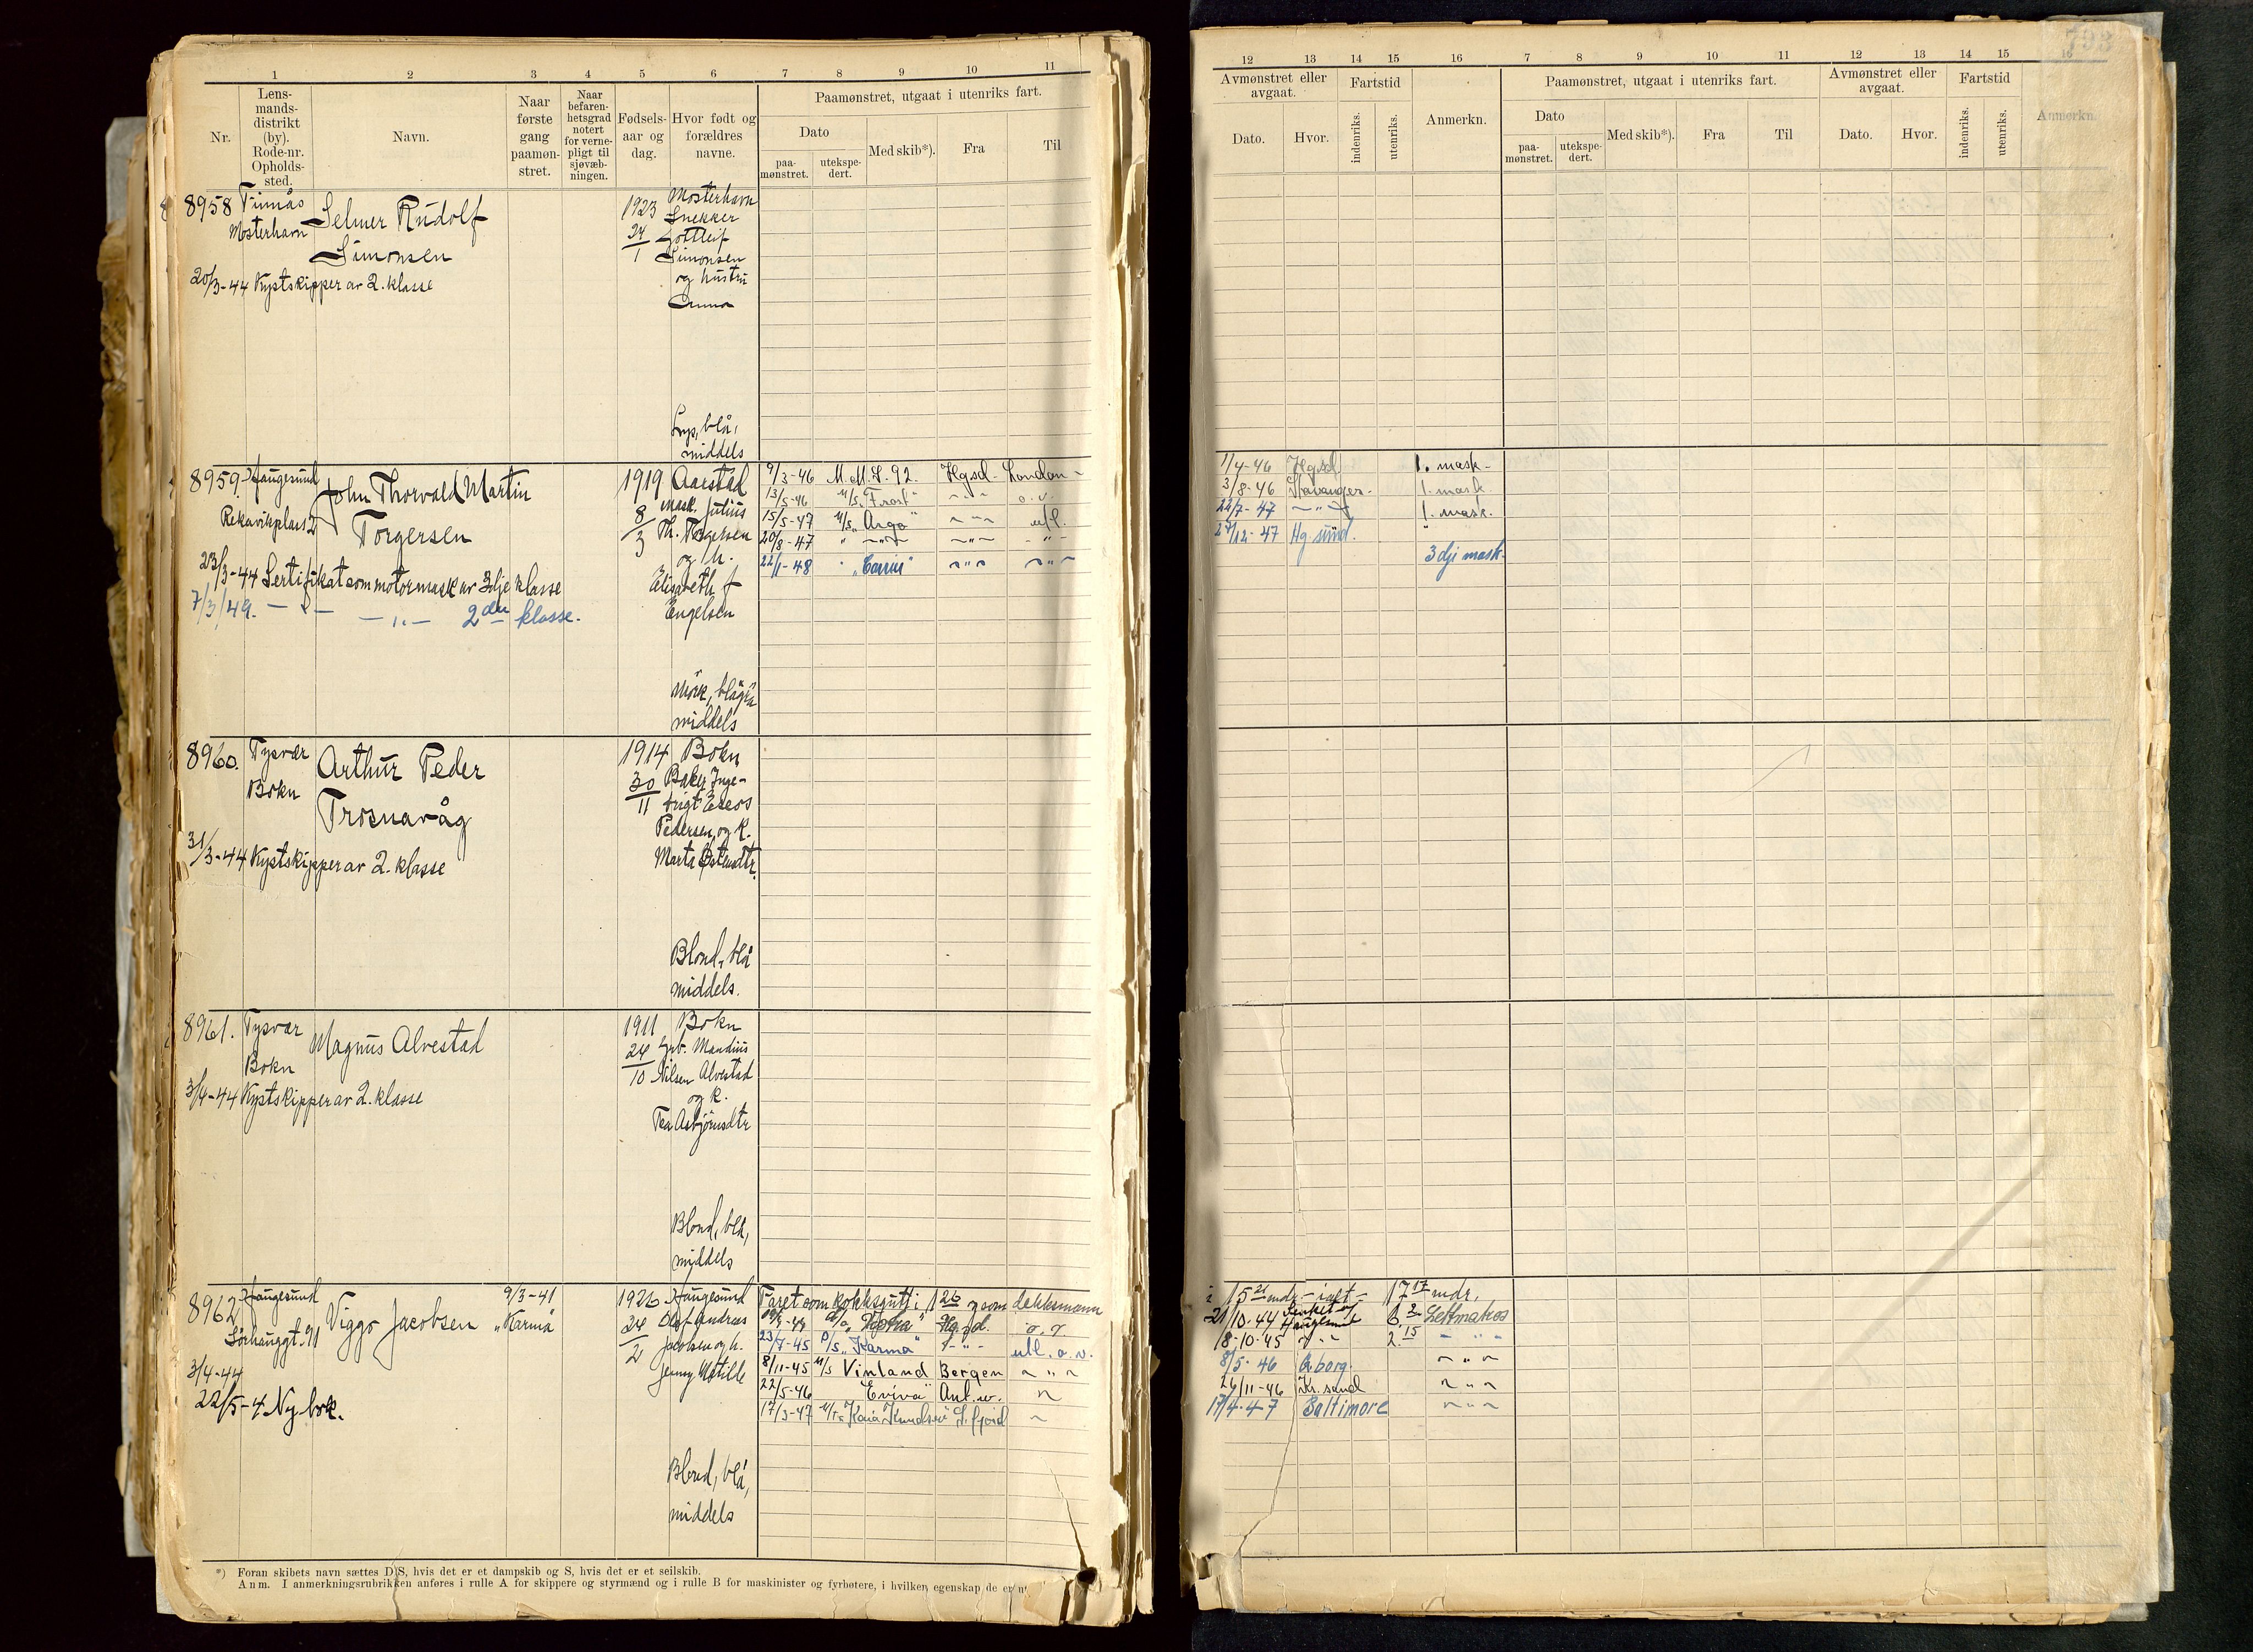 1 2 3 4 5 6 7 8 9 10 11
Nr.
Lens-
mands-
distrikt
(by).
Rode-nr.
Opholds-
sted.
Navn.
Naar
første
gang
paamøn-
stret.
Naar
befaren-
hetsgrad
notert
for verne-
pligt til
sjøvæb-
ningen.
Fødsels-
aar og
dag.
Hvor født og
forældres
navne.
Paamønstret, utgaat i utenriks fart.
Dato
paa-
mønstret.
utekspe-
dert.
Med skib*).
Fra
Til
8958 Finnås
Mosterhavn
Selmer Rudolf
Simonsen
20/3-44 Kystskipper av 2. klasse
1923
24
1
Mosterhavn
Snekker
Gottleif
Simonsen
og hustru
Anna
Lys, blå,
middels
8959. Haugesund
John Thorvald Martin
Torgersen
23/3-44 Sertifikat som motormask av 3dje klasse
7/3/49. — " — — " — 2den klasse.
1919
8
3
mask. Julius
Th. Torgersen
og h.
Elisabeth f
Engelsen
Mørk, blågrå
middels
9/3-46 M.M.S. 92. Hgsd- London -
13/5-46 M/S „Frost" - " - o.v.
15/5-47 M/S „Argo" - " - utl.
20/8-47 " - " - - " - - " -
22/1-48 " - " - - " -
8960. Tysvær
Bokn
Arthur Peder
Trosnavåg
31/3-44 Kystskipper av 2. klasse
1914
30
11
Bokn,
Pedersen, og k.
Blond, blå
middels.
8961. Tysvær
Bokn
Magnus Alvestad
3/4-44 Kystskipper av 2. klasse
1911
24
10
Bokn
Grb. Mandius
Nilsen Alvestad
og k.
Tea Asbjørnsdtr
Blond, blå,
middels
8962 Haugesund
Sørhauggt. 91
Viggo Jacobsen
9/3-41
„Karmå
3/4-44
22/5-4 Ny bok.
1926
24
2
Haugesund
Olaf Andreas
Jacobsen og h.
Jenny Matille
Blond, blå,
middels
Faret som kokksgutt i 1 26 og som dekksmann
Hgsd. o.v.
23/7-45 D/S „Karmå" - " - utl. o.v.
8/11-45 M/S Vinland Bergen - " -
22/5-46 „Eviva" Ant.w. "
17/3-47 M/T „Kaia Knudsen" S.fjord -
*) Foran skibets navn sættes D/S, hvis det er et dampskib og S, hvis det er et seilskib.
Anm. I anmerkningsrubrikken anføres i rulle A for skippere og styrmænd og i rulle B for maskinister og fyrbøtere, i hvilken egenskap de er
793
12 13 14 15 16 7 8 9 10 11 12 13 14 15 16
Avmønstret eller
avgaat.
Dato.
Hvor.
Fartstid
indenriks.
utenriks.
Anmerkn.
Paamønstret, utgaat i utenriks fart.
Dato
paa-
mønstret.
utekspe-
dert.
Med skib*).
Fra
Til
Avmønstret eller
avgaat.
Dato.
Hvor.
Fartstid
indenriks.
utenriks.
Anmerkn.
1/4-46 Hgsd 1. mask-
3/8-46 Stavanger- 1. mask
22/7-47 - " - 1. mask.
27/12-47 Hg.sund. "
3dje mask-
i 15 21 mdr.- ialt- 17 17 mdr.
21/10.44 Senket v/ Haugesund 6. 2 Lettmatros
18-10-45 - " - 2. 15 - " -
8/5-46 - " -
26/11-46 Kr.sand - " -
17/4-47 Baltimore - " -